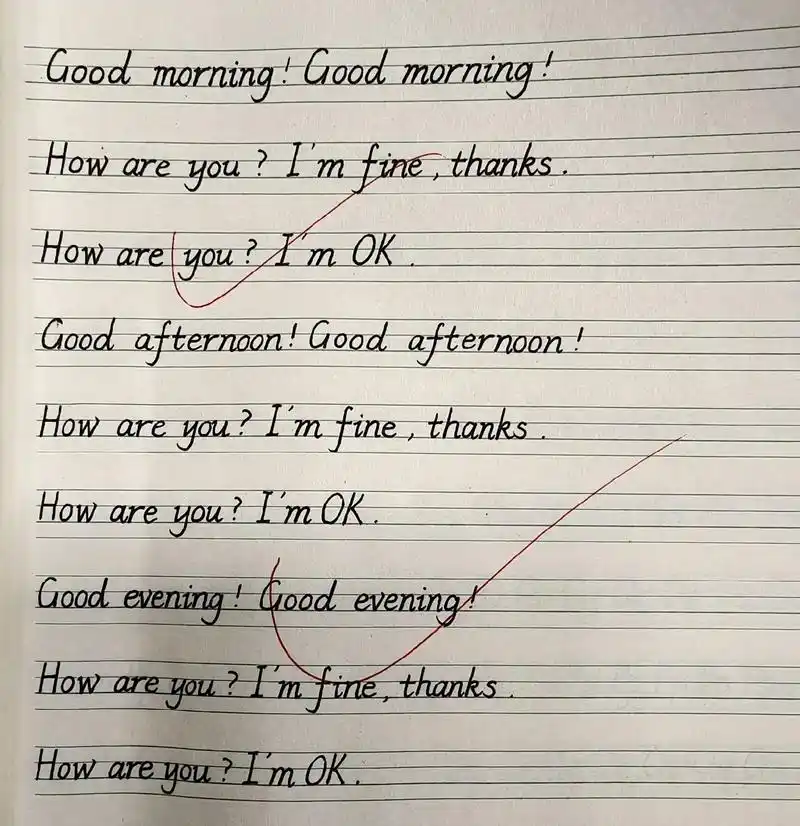 Good morning! Good morning!
How are you? I'm fine, thanks.
How are you? I'm OK.
Good afternoon! Good afternoon!
How are you? I'm fine, thanks.
How are you? I'm OK.
Good evening! Good evening!
How are you? I'm fine, thanks.
How are you? I'm OK.